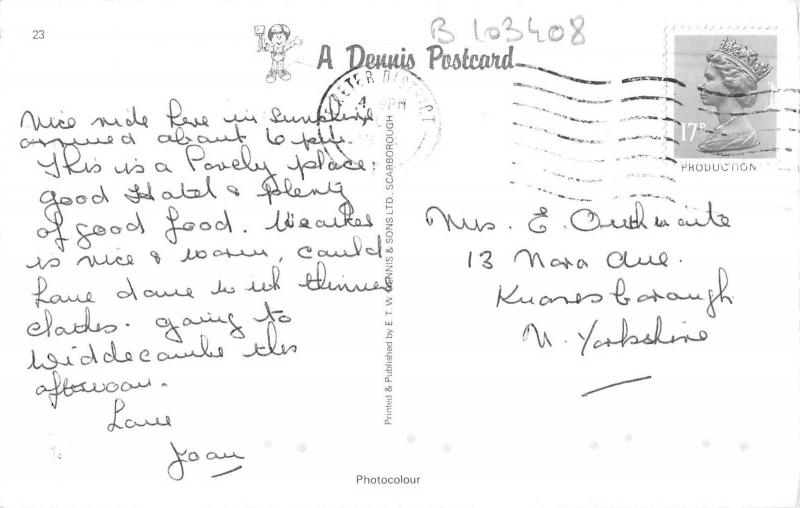 23
B 103408
A Dennis Postcard
EXETER DISTRICT
PM
17P
PRODUCTION
Nice ride here in Sunshine
arrived about 6 pm.
This is a lovely place.
good Hotel & plenty
of good food. Weather
is nice & warm, could
have done with thinner
clothes. going to
Widdecombe this
afternoon.
Love
Joan
Printed & Published by E. T. W. DENNIS & SONS LTD., SCARBOROUGH
Mrs. E. Outhwaite
13 Nora Ave.
Knaresborough
N. Yorkshire
Photocolour